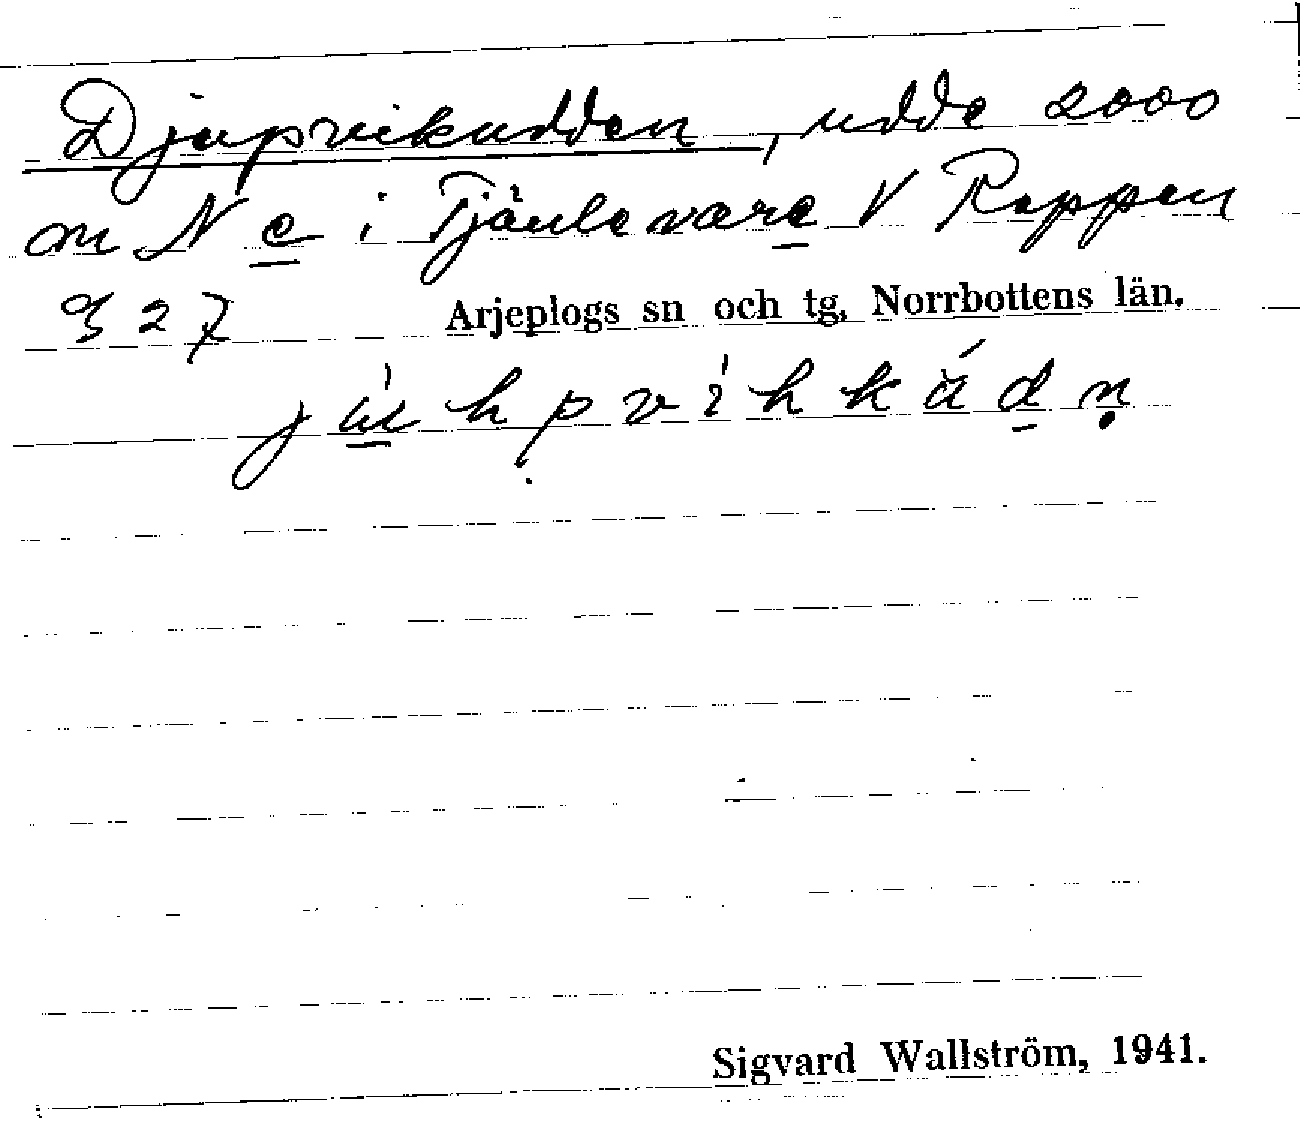 Djupvikudden, udde 2000
m N e i Tjäulevare V Rappen
G 27 Arjeplogs sn och tg, Norrbottens län.
Sigvard Wallström, 1941.